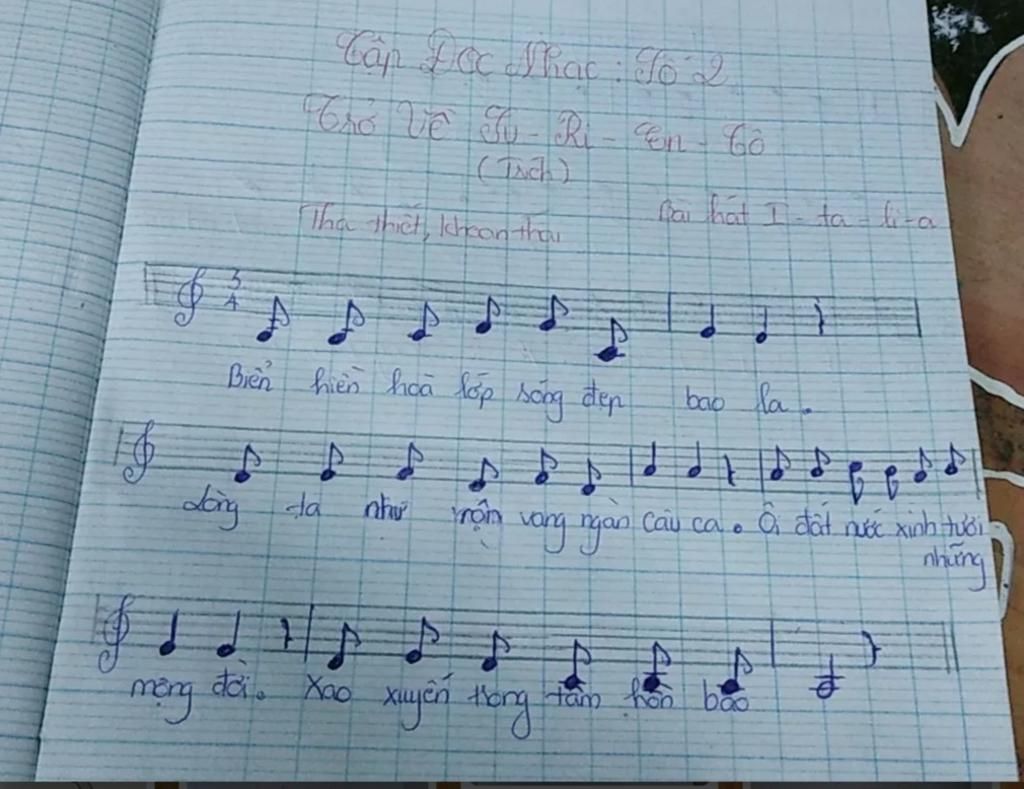 Tập Đọc Nhạc: Số 2
Trở Về Su - Ri - En - Tô
(Trích)
Tha thiết, khoan thai
Bài hát I - ta - li - a
3
4
Biển hiền hoà lớp sóng đẹp bao la.
Lòng ta như rộn vang ngàn câu ca. Ôi đất nước xinh tươi
những
mộng đời. Xao xuyến trong tâm hồn bao